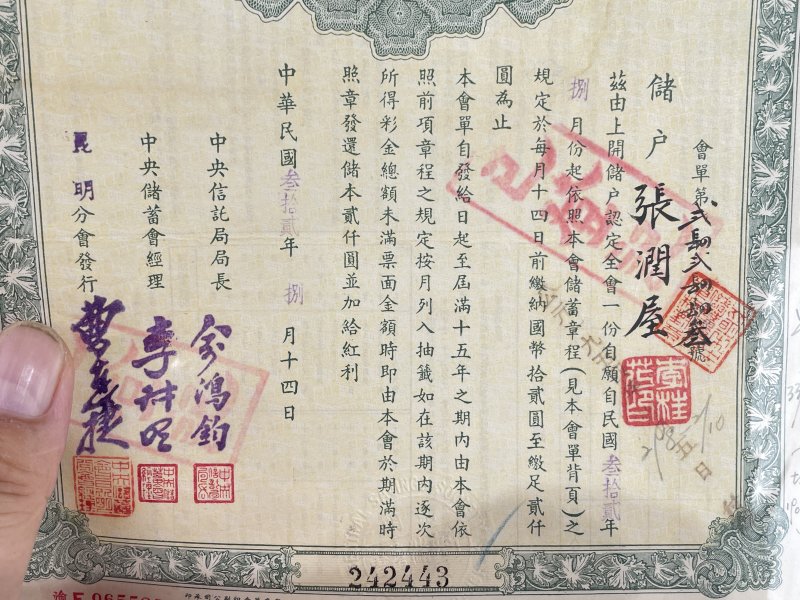 會單第貳肆貳肆肆叁號
儲户 張潤屋
茲由上開儲户認定全會一份自願自民國叁拾貳年
捌月份起依照本會儲蓄章程(見本會單背頁)之
規定於每月十四日前繳納國幣拾貳圓至繳足貳仟
圓為止
本會單自發給日起至屆滿十五年之期內由本會依
照前項章程之規定按月列入抽籤如在該期內逐次
所得彩金總額未滿票面金額時即由本會於期滿時
照章發還儲本貳仟圓並加給紅利
中華民國叁拾貳年捌月十四日
中央信託局局長
俞鴻鈞
中央儲蓄會經理
昆明分會發行
242443